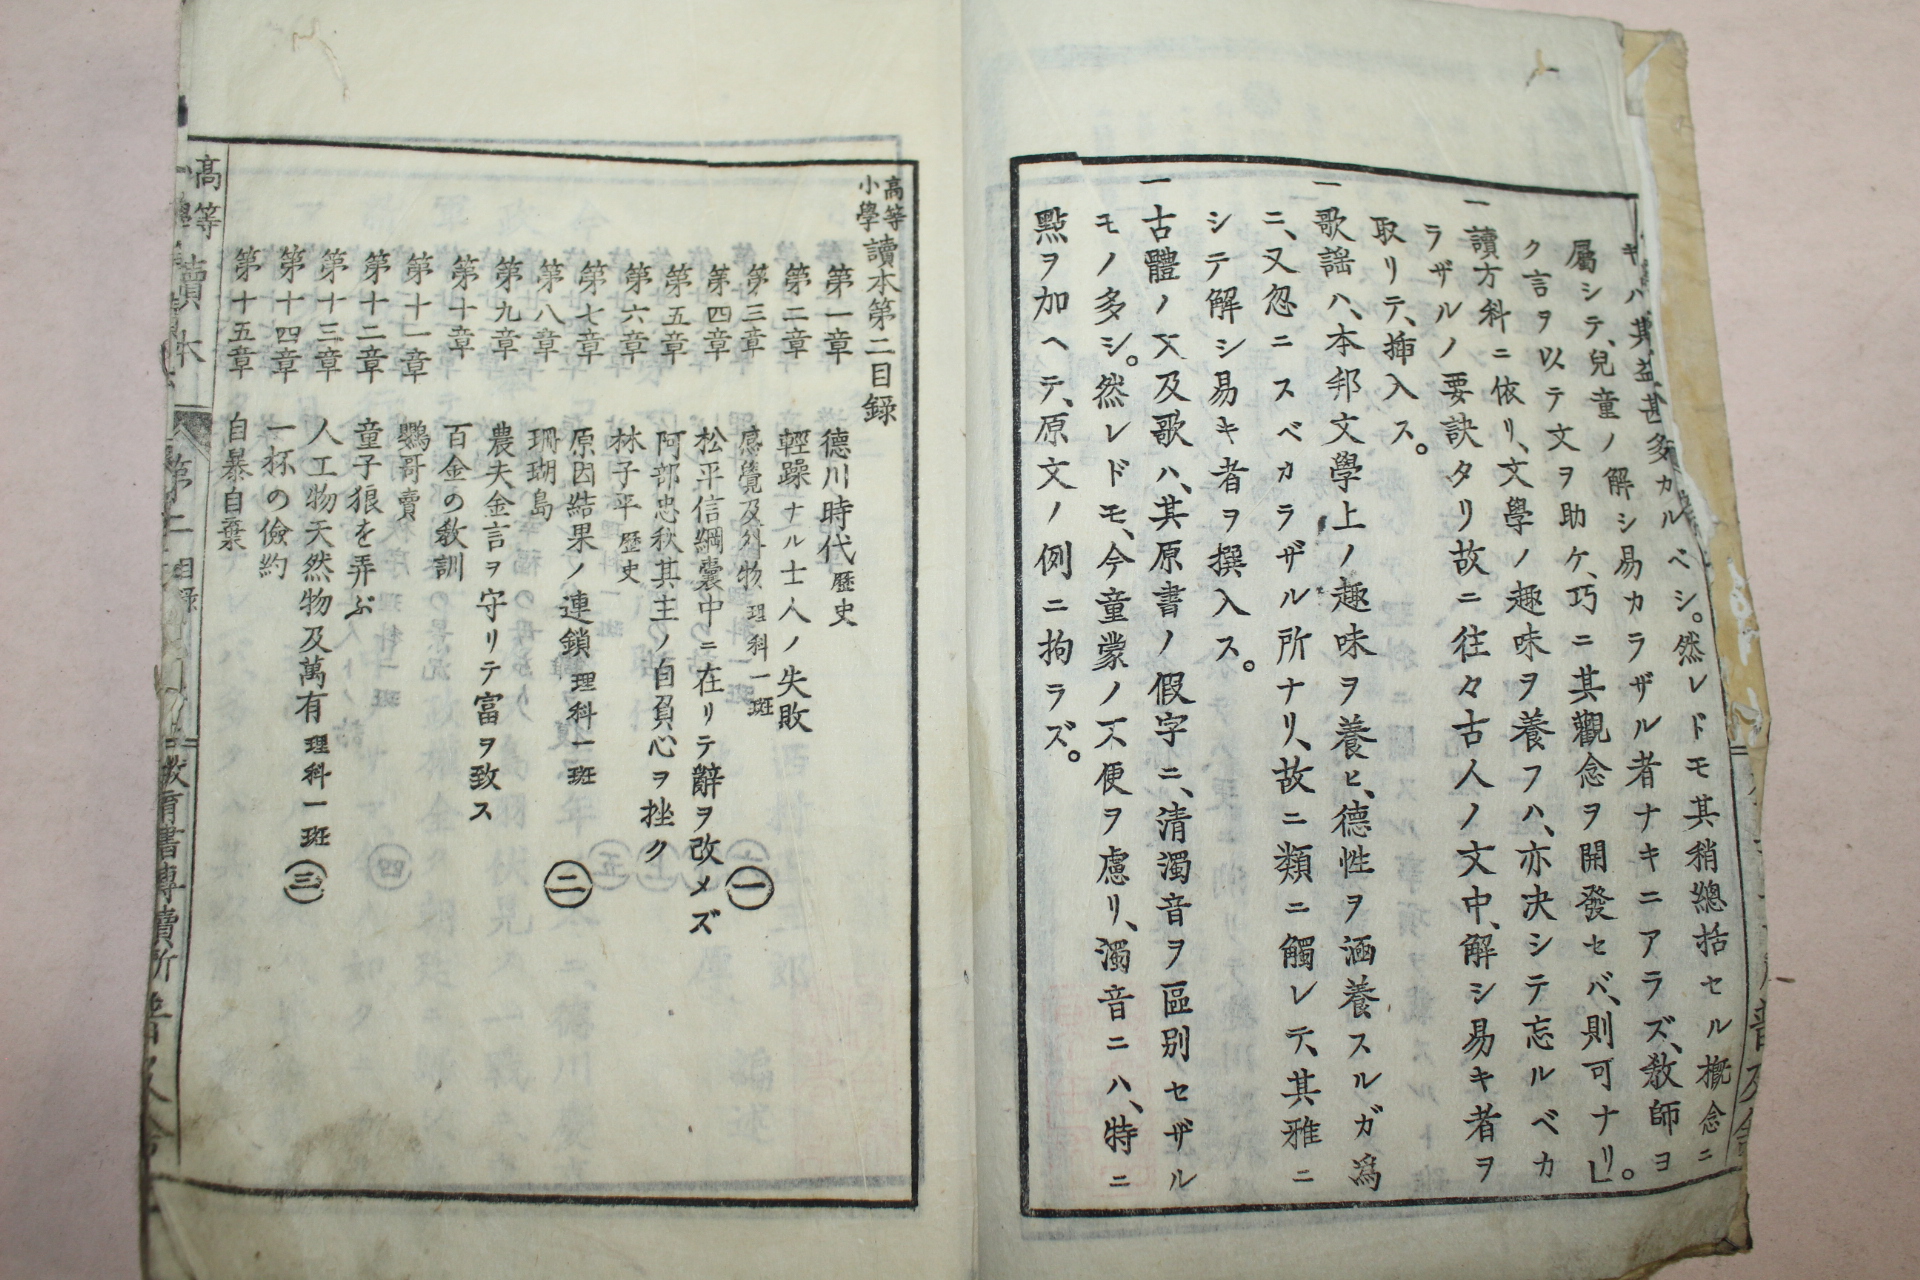 キハ、其益甚多カルベシ。然レドモ其稍總括セル概念ニ
屬シテ、兒童ノ解シ易カラザル者ナキニアラズ、敎師ヨ
ク言ヲ以テ文ヲ助ケ、巧ニ其觀念ヲ開發セバ、則可ナリ」。
一讀方科ニ依リ、文學ノ趣味ヲ養フハ、亦決シテ忘ルベカ
ラザルノ要訣タリ故ニ往々古人ノ文中、解シ易キ者ヲ
取リテ、揷入ス。
一歌謡ハ、本邦文學上ノ趣味ヲ養ヒ、德性ヲ涵養スルガ爲
ニ、又忽ニスベカラザル所ナリ、故ニ類ニ觸レテ、其雅ニ
シテ解シ易キ者ヲ撰入ス。
一古體ノ文及歌ハ、其原書ノ假字ニ、清濁音ヲ區別セザル
モノ多シ。然レドモ、今童蒙ノ不便ヲ慮リ、濁音ニハ、特ニ
點ヲ加ヘテ、原文ノ例ニ拘ラズ。
高等小學讀本第二目録
第一章 德川時代 歷史
第二章 輕躁ナル士人ノ失敗
第三章 感覺及外物 理科一斑 一
第四章 松平信綱囊中ニ在リテ辭ヲ改メズ
第五章 阿部忠秋其主ノ自負心ヲ挫ク
第六章 林子平 歷史
第七章 原因結果ノ連鎖 理科一斑 二
第八章 珊瑚島
第九章 農夫金言ヲ守リテ富ヲ致ス
第十章 百金の敎訓
第十一章 鸚哥賣
第十二章 童子狼を弄ぶ
第十三章 人工物天然物及萬有 理科一斑 三
第十四章 一杯の儉約
第十五章 自暴自棄
高等小學讀本 第二 目録 敎育書專賣所普及舍